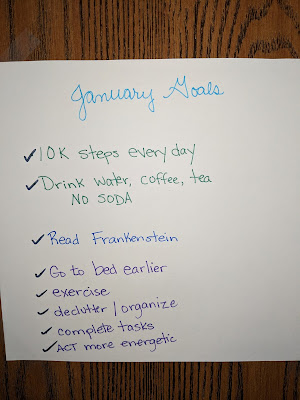 January Goals
✓10K steps every day
✓Drink water, coffee, tea
NO SODA
✓Read Frankenstein
✓Go to bed earlier
✓exercise
✓declutter/organize
✓complete tasks
✓ACT more energetic